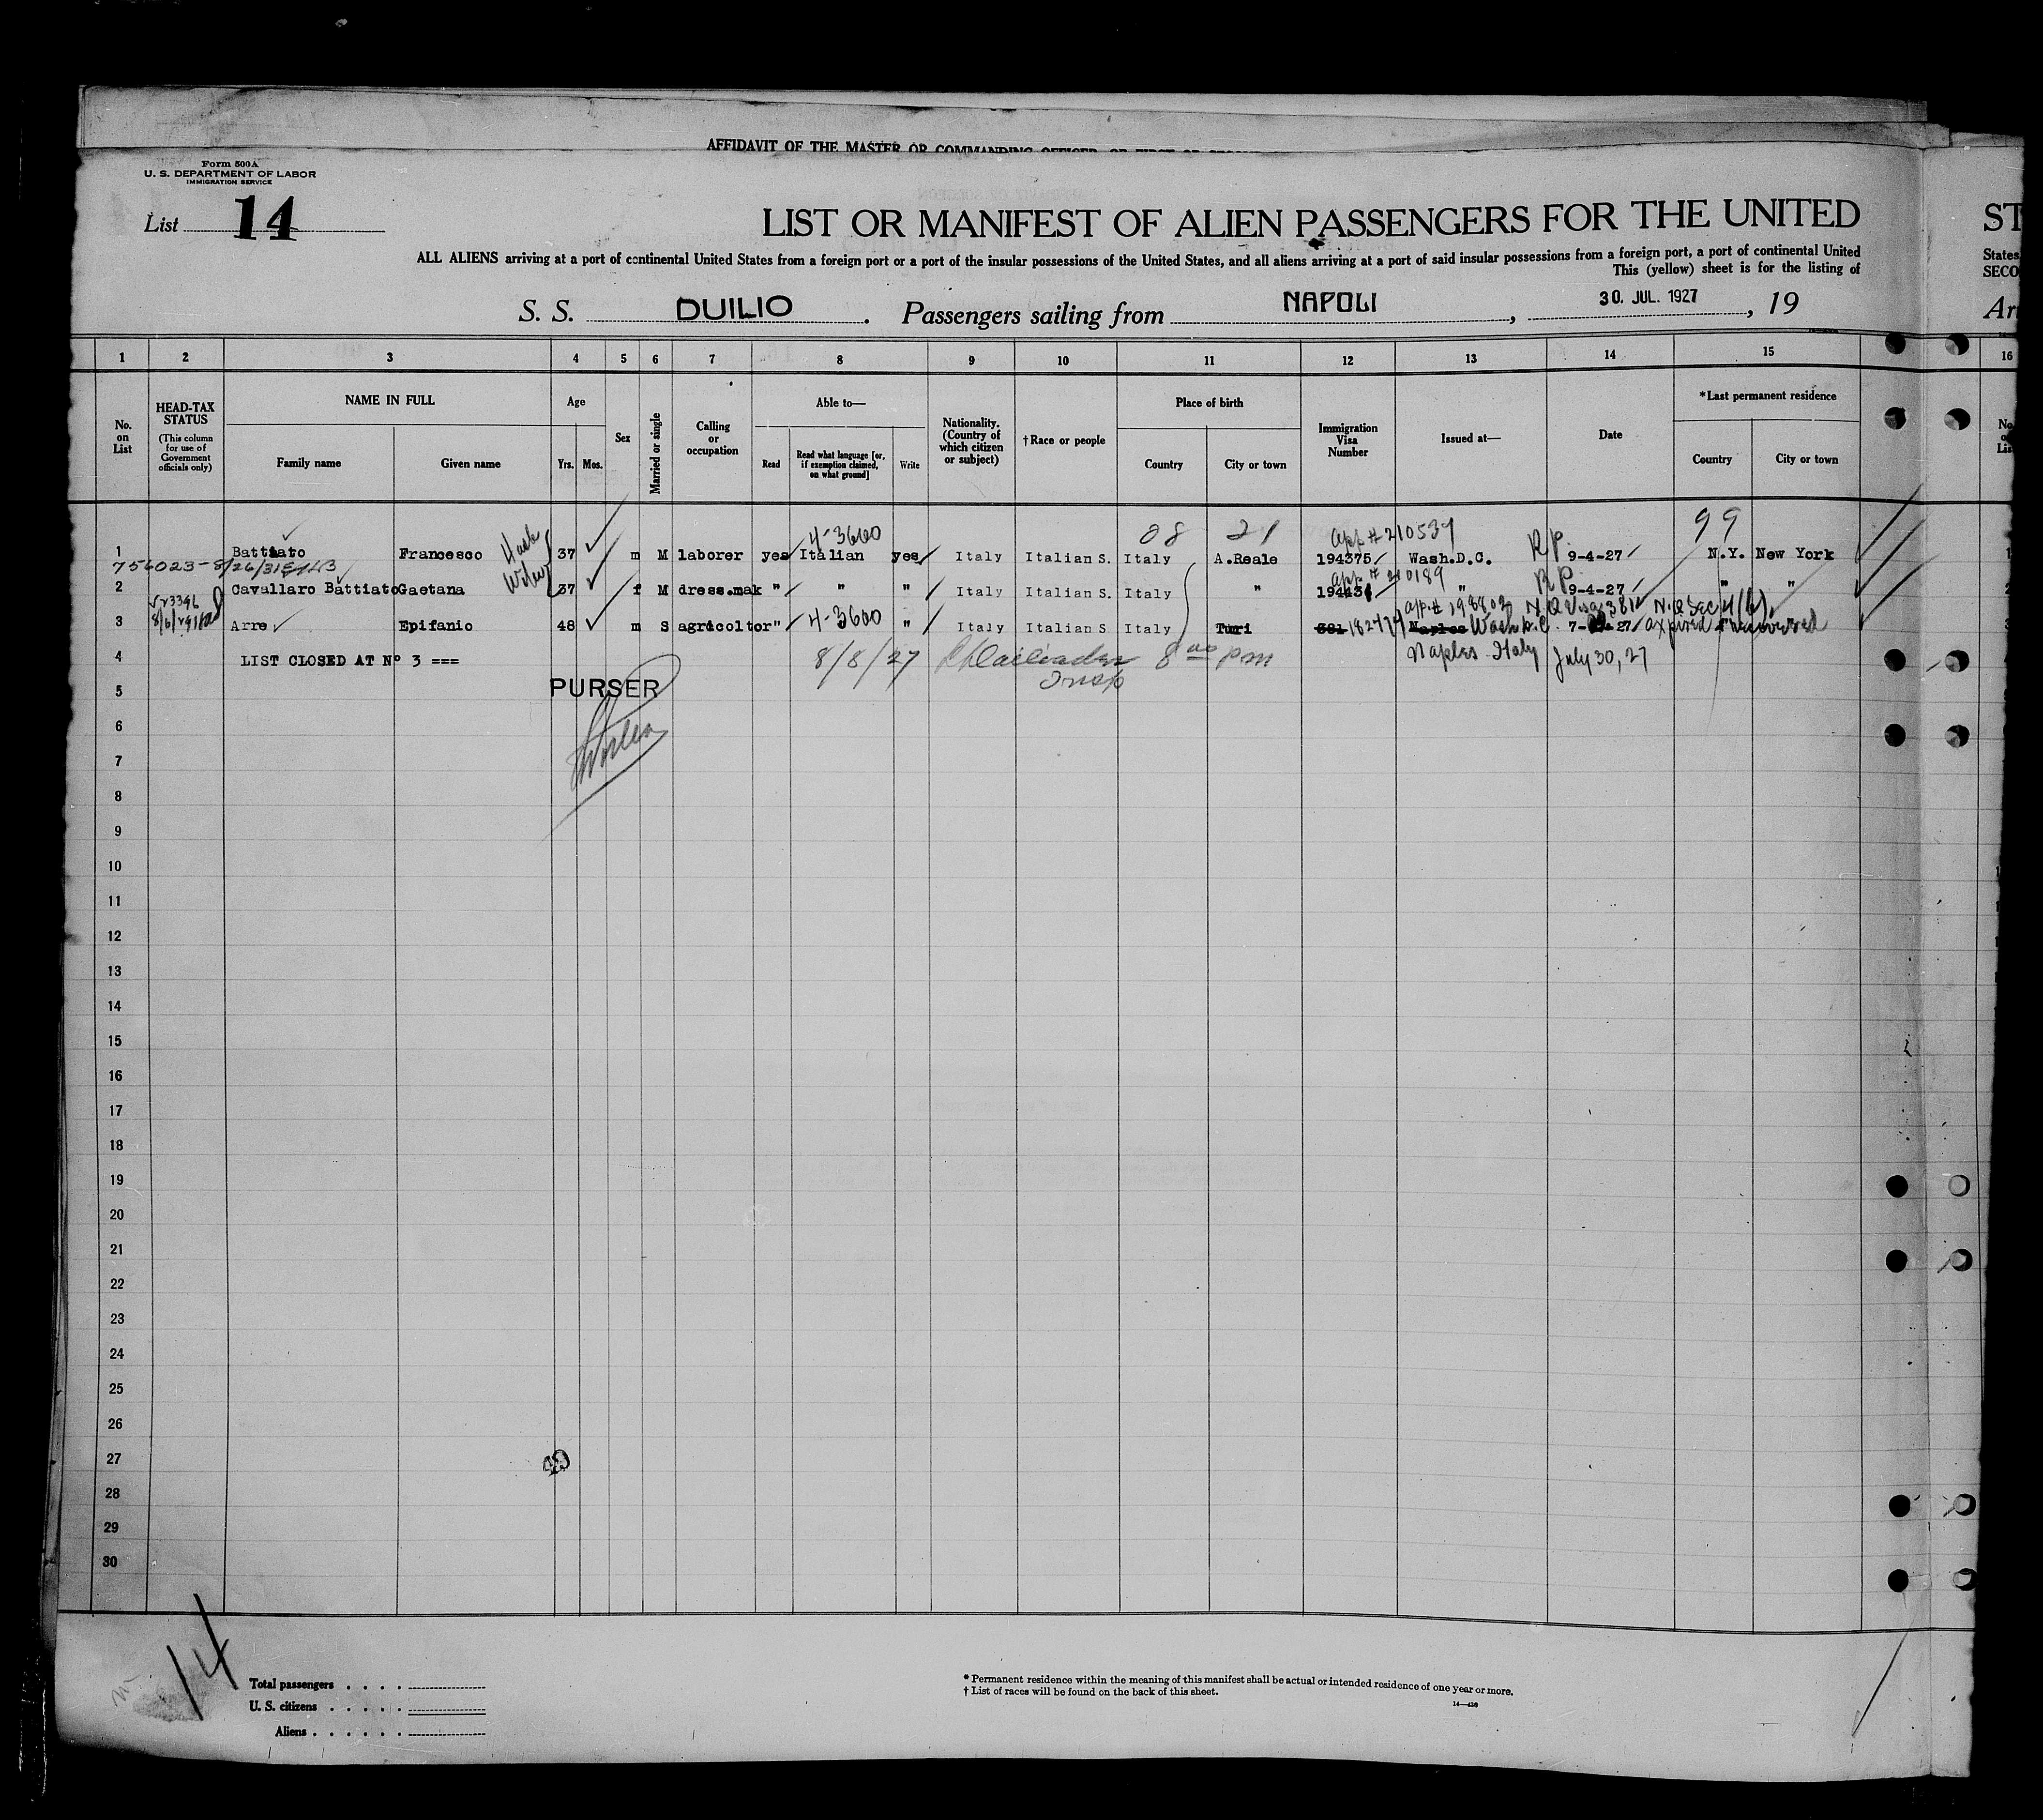 AFFIDAVIT OF THE MASTER OR COMMANDING OFFICER, OR FIRST OR
Form 500A
U. S. DEPARTMENT OF LABOR
IMMIGRATION SERVICE
List 14
LIST OR MANIFEST OF ALIEN PASSENGERS FOR THE UNITED ST
ALL ALIENS arriving at a port of continental United States from a foreign port or a port of the insular possessions of the United States, and all aliens arriving at a port of said insular possessions from a foreign port, a port of continental United States
This (yellow) sheet is for the listing of SECO
S. S. DUILIO. Passengers sailing from NAPOLI, 30. JUL. 1927, 19 Arr
1 2 3 4 5 6 7 8 9 10 11 12 13 14 15 16
No. on List
HEAD-TAX STATUS
(This column for use of Government officials only)
NAME IN FULL
Family name Given name
Age
Yrs. Mos.
Sex
Married or single
Calling or occupation
Able to—
Read
Read what language [or, if exemption claimed, on what ground]
Write
Nationality. (Country of which citizen or subject)
†Race or people
Place of birth
Country City or town
Immigration Visa Number
Issued at—
Date
*Last permanent residence
Country City or town
4-3600 08 21 app # 210537 99
1 Battiato Francesco 37 m M laborer yes Italian yes Italy Italian S. Italy A.Reale 194375 Wash.D.C. RP 9-4-27 N.Y. New York
756023-8/26/31
app # 210189
2 Cavallaro Battiato Gaetana Wife 37 f M dress.mak " " " Italy Italian S. Italy " 19443 " RP 9-4-27 " "
app # 198802 N.Q. Visa 381 N.Q Sec 4(b)
3 Arre Epifanio 48 m S agricoltor " 4-3600 " Italy Italian S Italy Turi 381 Naples Wash D.C. 7- 27 expired
4 LIST CLOSED AT Nº 3 === 8/8/27 8 00 pm Naples Italy July 30, 27
Insp
5 PURSER
6
7
8
9
10
11
12
13
14
15
16
17
18
19
20
21
22
23
24
25
26
27
28
29
30
14
Total passengers . . . .
U. S. citizens . . . . .
Aliens . . . . . .
* Permanent residence within the meaning of this manifest shall be actual or intended residence of one year or more.
† List of races will be found on the back of this sheet.
14—436